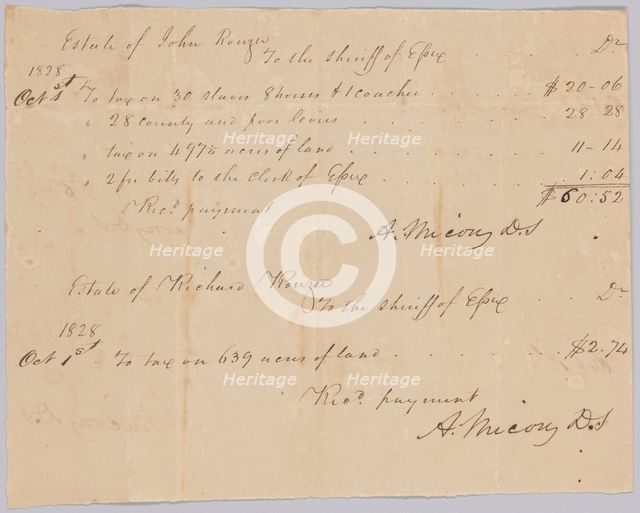 Estate of John Rouzee
To the sheriff of Essex . . . . . Dr
1828
Oct 1st To tax on 30 slaves 8 horses & 1 coachee . . . . $20-06
" 28 county and poor levies . . . . 28 28
" tax on 4975 acres of land . . . . 11-14
" 2 fee bills to the clerk of Essex . . . . 1:04
$60:52
Recd payment
A. Micou, D.S
Estate of Richard Rouzee
To the sheriff of Essex . . Dr
1828
Oct 1st . To tax on 639 acres of land . . . . . $2.74
Recd. payment
A. Micou, D.S
Heritage
Heritage
Heritage
Heritage
Heritage
Heritage
Heritage
Heritage
Heritage
Heritage
C